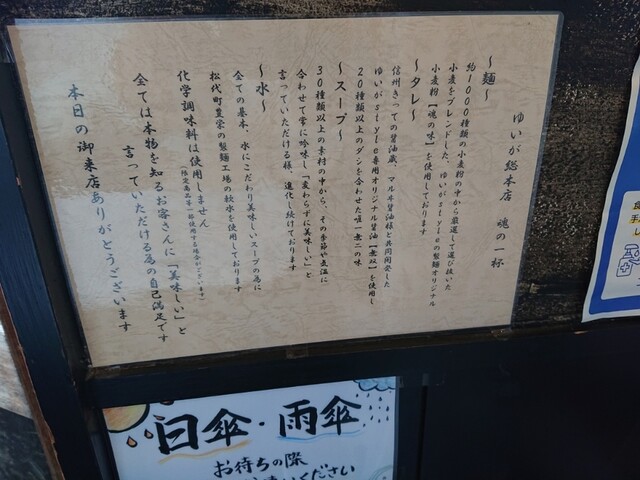 ゆいが総本店 魂の一杯
～麺～
約1000種類の小麦粉の中から厳選して選び抜いた
小麦をブレンドした、ゆいがstyleの製麺オリジナル
小麦粉【魂の味】を使用しております
～タレ～
信州きっての醤油蔵、マルヰ醤油様と共同開発した
ゆいがstyle専用オリジナル醤油【無双】を使用し
20種類以上のダシを合わせた唯一無二の味
～スープ～
30種類以上の素材の中から、その季節や気温に
合わせて常に吟味し「変わらずに美味しい」と
言っていただける様、進化し続けております
～水～
全ての基本、水にこだわり美味しいスープの為に
松代町豊栄の製麺工場の軟水を使用しております
化学調味料は使用しません
(限定商品等一部使用する場合がございます)
全ては本物を知るお客さんに「美味しい」と
言っていただける為の自己満足です
本日の御来店ありがとうございます
日傘・雨傘
お待ちの際
ください